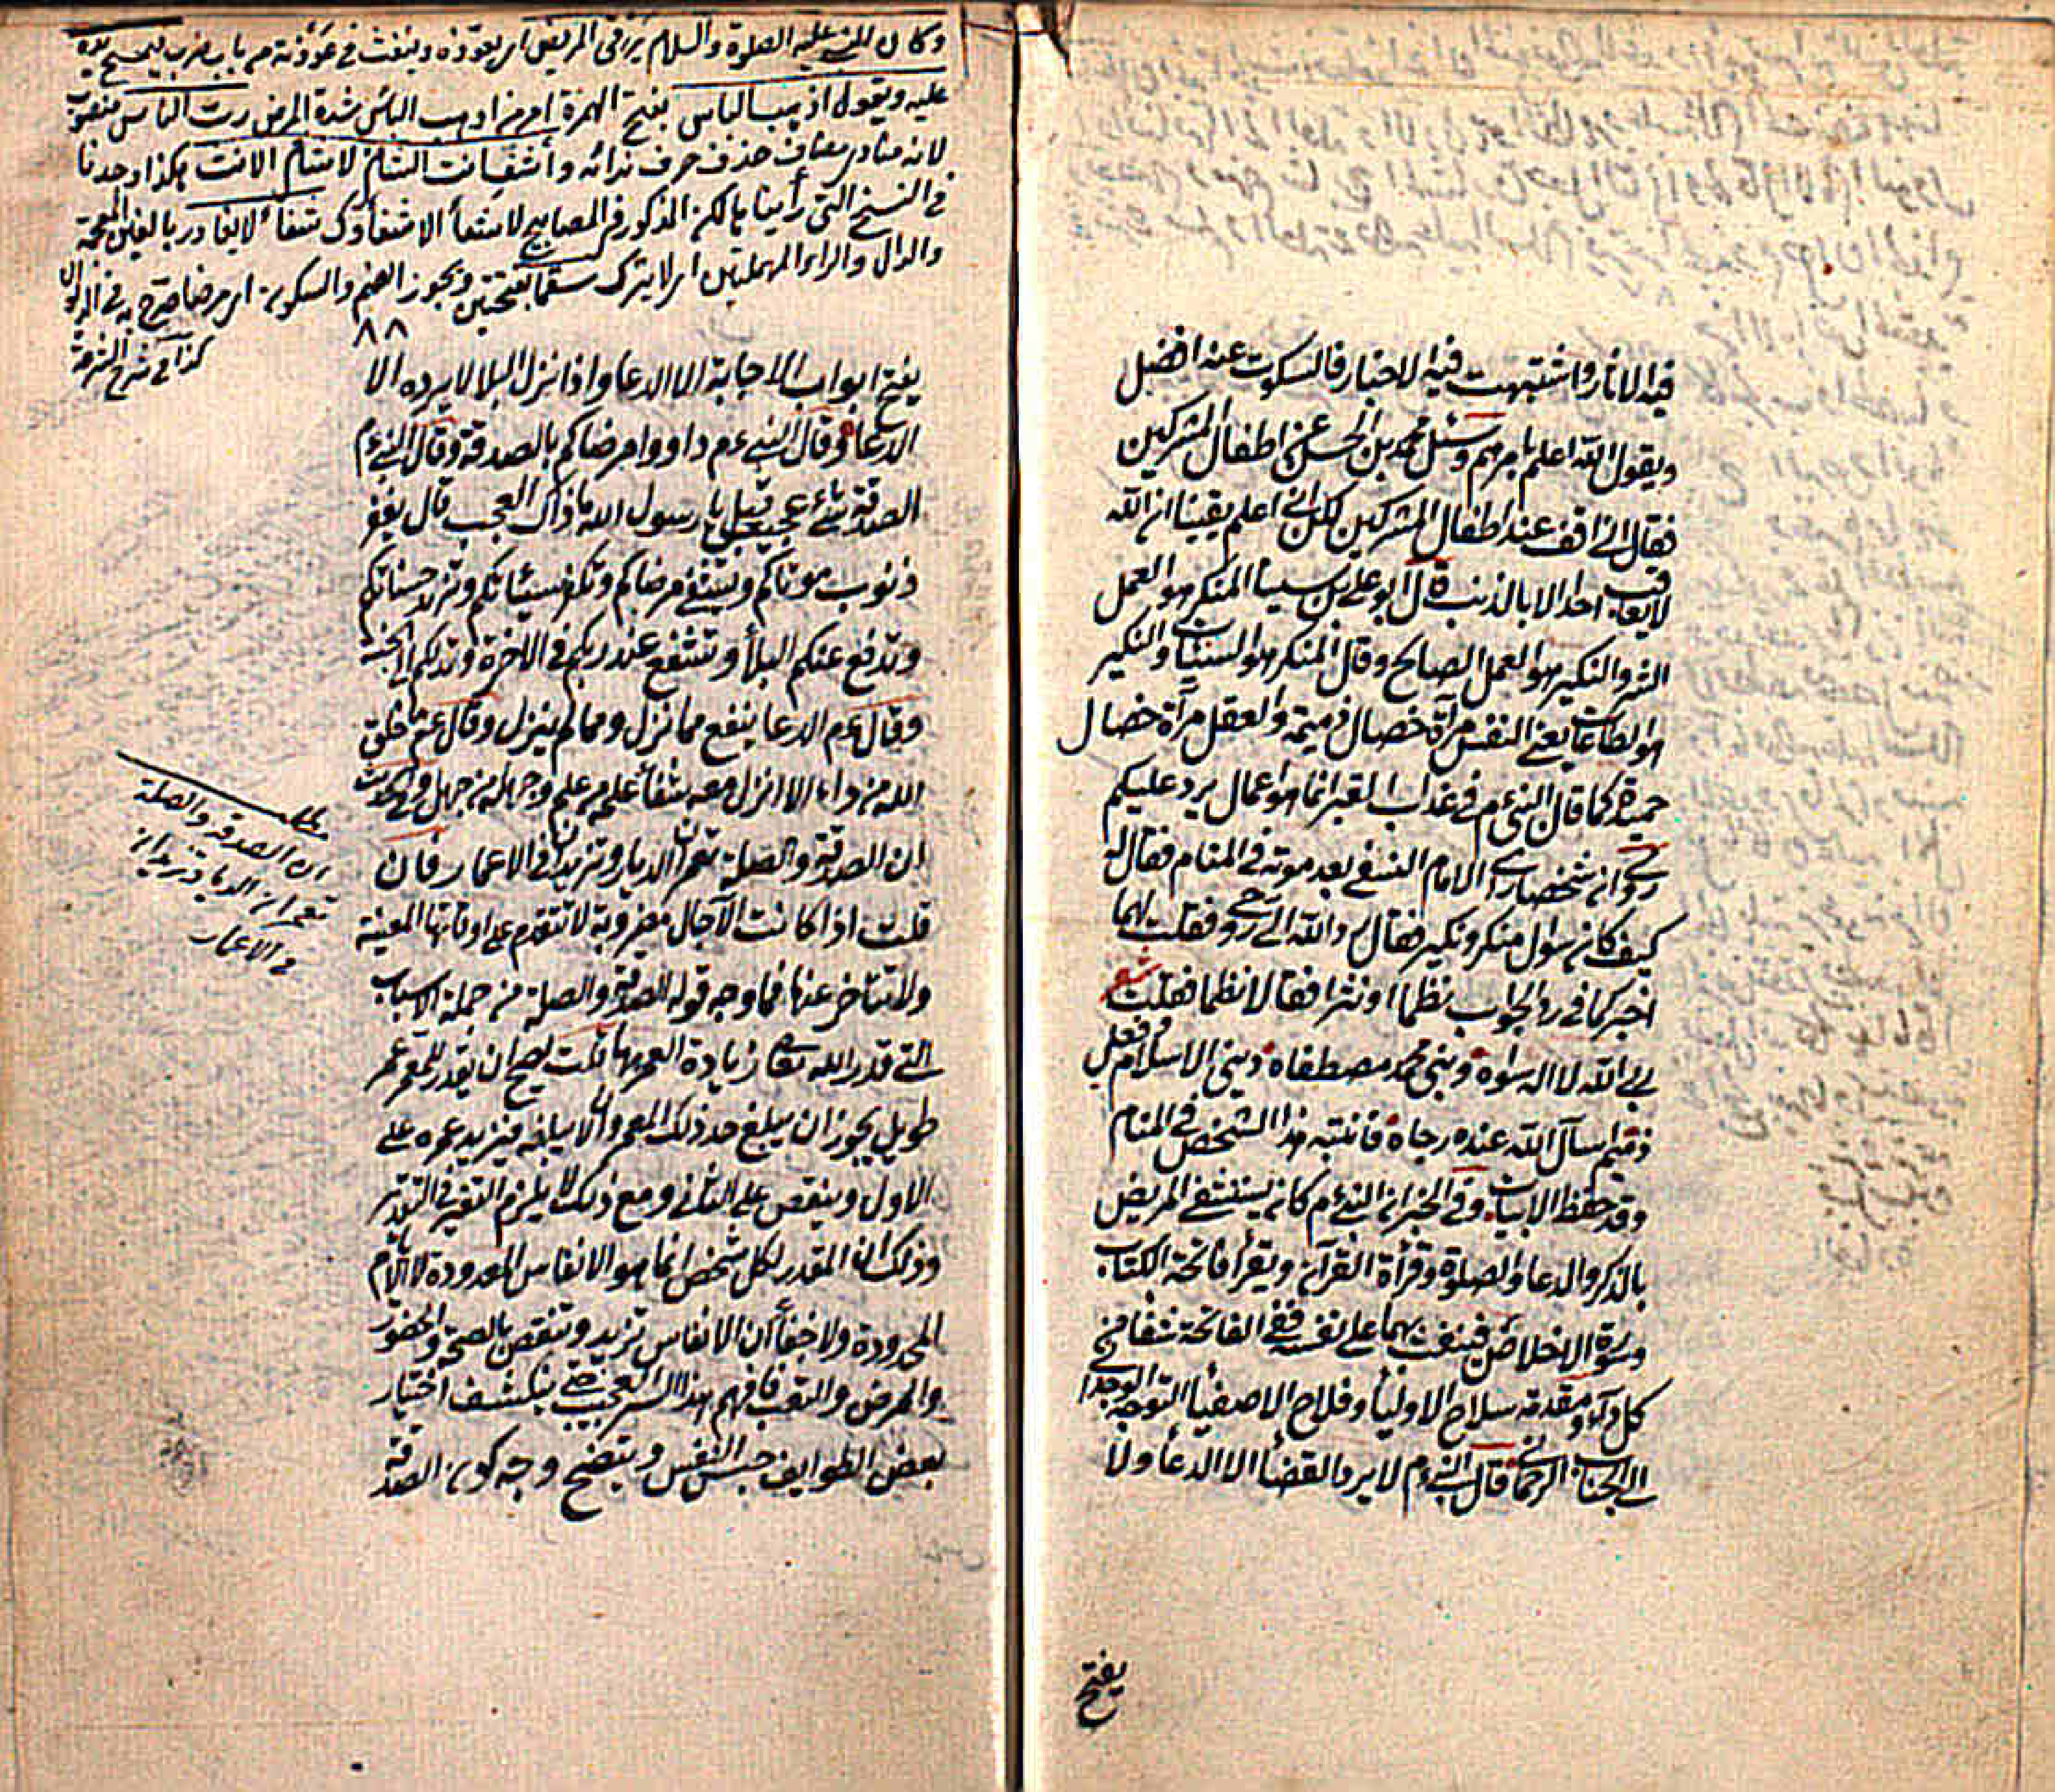 فيه الاثار واشتبهت فيه الاخبار فالسكوت عنه افضل
ويقول الله اعلم بامرهم وسئل محمد بن الحسن عن اطفال المشركين
فقال اني اقف عند اطفال المشركين لكن اني اعلم يقينا ان الله
لا يعاقب احدا الا بالذنب قال ابو علي بن سينا المنكر هو العمل
الشر والنكير هو العمل الصالح وقال المنكر هو السيئات والنكير
هو الطاعات يعني النفس مرآة خصال ذميمة والعقل مرآة خصال
حميدة كما قال النبي ءم في عذاب القبر انما هو اعمال يرد عليكم
روي ان شخصا رأى الامام النسفي بعد موته في المنام فقال له
كيف كان سؤال منكر ونكير فقال رد الله الي روحي فقلت لهما
اخبركما في رد الجواب نظما او نثرا فقالا نظما فقلت شعر
ربي الله لا اله سواه ونبي محمد مصطفاه ديني الاسلام فعلي
ذميم اسأل الله عنده رجاه فانتبه هذا الشخص في المنام
وقد حفظ الابيات وفي الخبر ان النبي ءم كان يستشفي المريض
بالذكر والدعا والصلوة وقرأة القرآن ويقرأ فاتحة الكتاب
وسورة الاخلاص فينفث بهما على نفسه ففي الفاتحة شفا من
كل داء ومقدمة سلاح الاوليأ وفلاح الاصفيأ التوجه الوجداني
الى الجناب الرحماني قال النبي ءم لا يرد القضأ الا الدعأ ولا
يفتح
وكان النبي عليه الصلوة والسلام يرقى المريض اي يعوذه وينفث في عوذته من باب ضرب يمسح يده
عليه ويقول اذهب الباس بفتح الهمزة امر من اذهب الباس شدة المرض رب الناس منصوب
لانه منادى مضاف حذف حرف ندائه وأشف انت الشافي لا شافي الا انت هكذا وجدنا
في النسخ التي رأيناها لكن المذكور في المصابيح لا شفأ الا شفأوك شفأ لا يغادر بالغين المعجمة
والدال والراء المهملتين اي لا يترك سقما بفتحتين ويجوز الضم والسكون اي مرضا
كذا في شرح الشرعة
٨٨
يفتح ابواب الاجابة الا الدعا واذا نزل البلا لا يرده الا
الدعا وقال النبي ءم داووا مرضاكم بالصدقة وقال النبي ءم
الصدقة شئ عجيب قيل يا رسول الله ما ذاك العجب قال يغفر
ذنوب موتاكم ويشفي مرضاكم وتكفر سيئاتكم وتزيد حسناتكم
وتدفع عنكم البلأ وتشفع عند ربكم في الاخرة وتدلكم الى الجنة
وقال ءم الدعا ينفع مما نزل ومما لم ينزل وقال ءم ما خلق
الله من داء الا انزل معه شفأ علمه من علم وجهله من جهل وفي الحديث
ان الصدقة والصلة تعمران الديار وتزيدان في الاعمار فان
قلت اذا كانت الآجال مضروبة لا تتقدم على اوقاتها المعينة
ولا تتأخر عنها فما وجه قوله الصدقة والصلة من جملة الاسباب
التي قدر الله تعالى زيادة العمر بها قلت يصح ان يقدر للمعمر عمر
طويل يجوز ان يبلغ حد ذلك المعمر وان لا يبلغه فيزيد عمره على
الاول وينقص على الثاني ومع ذلك لا يلزم التغير في التقدير
وذلك ان المقدر لكل شخص انما هو الانفاس المعدودة لا الايام
المحدودة ولا خفأ ان الانفاس تزيد وتنقص بالصحة والحضور
والمرض والتعب فافهم هذا السر العجيب حتى ينكشف اختيار
بعض الطوايف حبس النفس ويتضح وجه كون الصدقة
ان الصدقة والصلة
تعمران الديار وتزيدان
في الاعمار